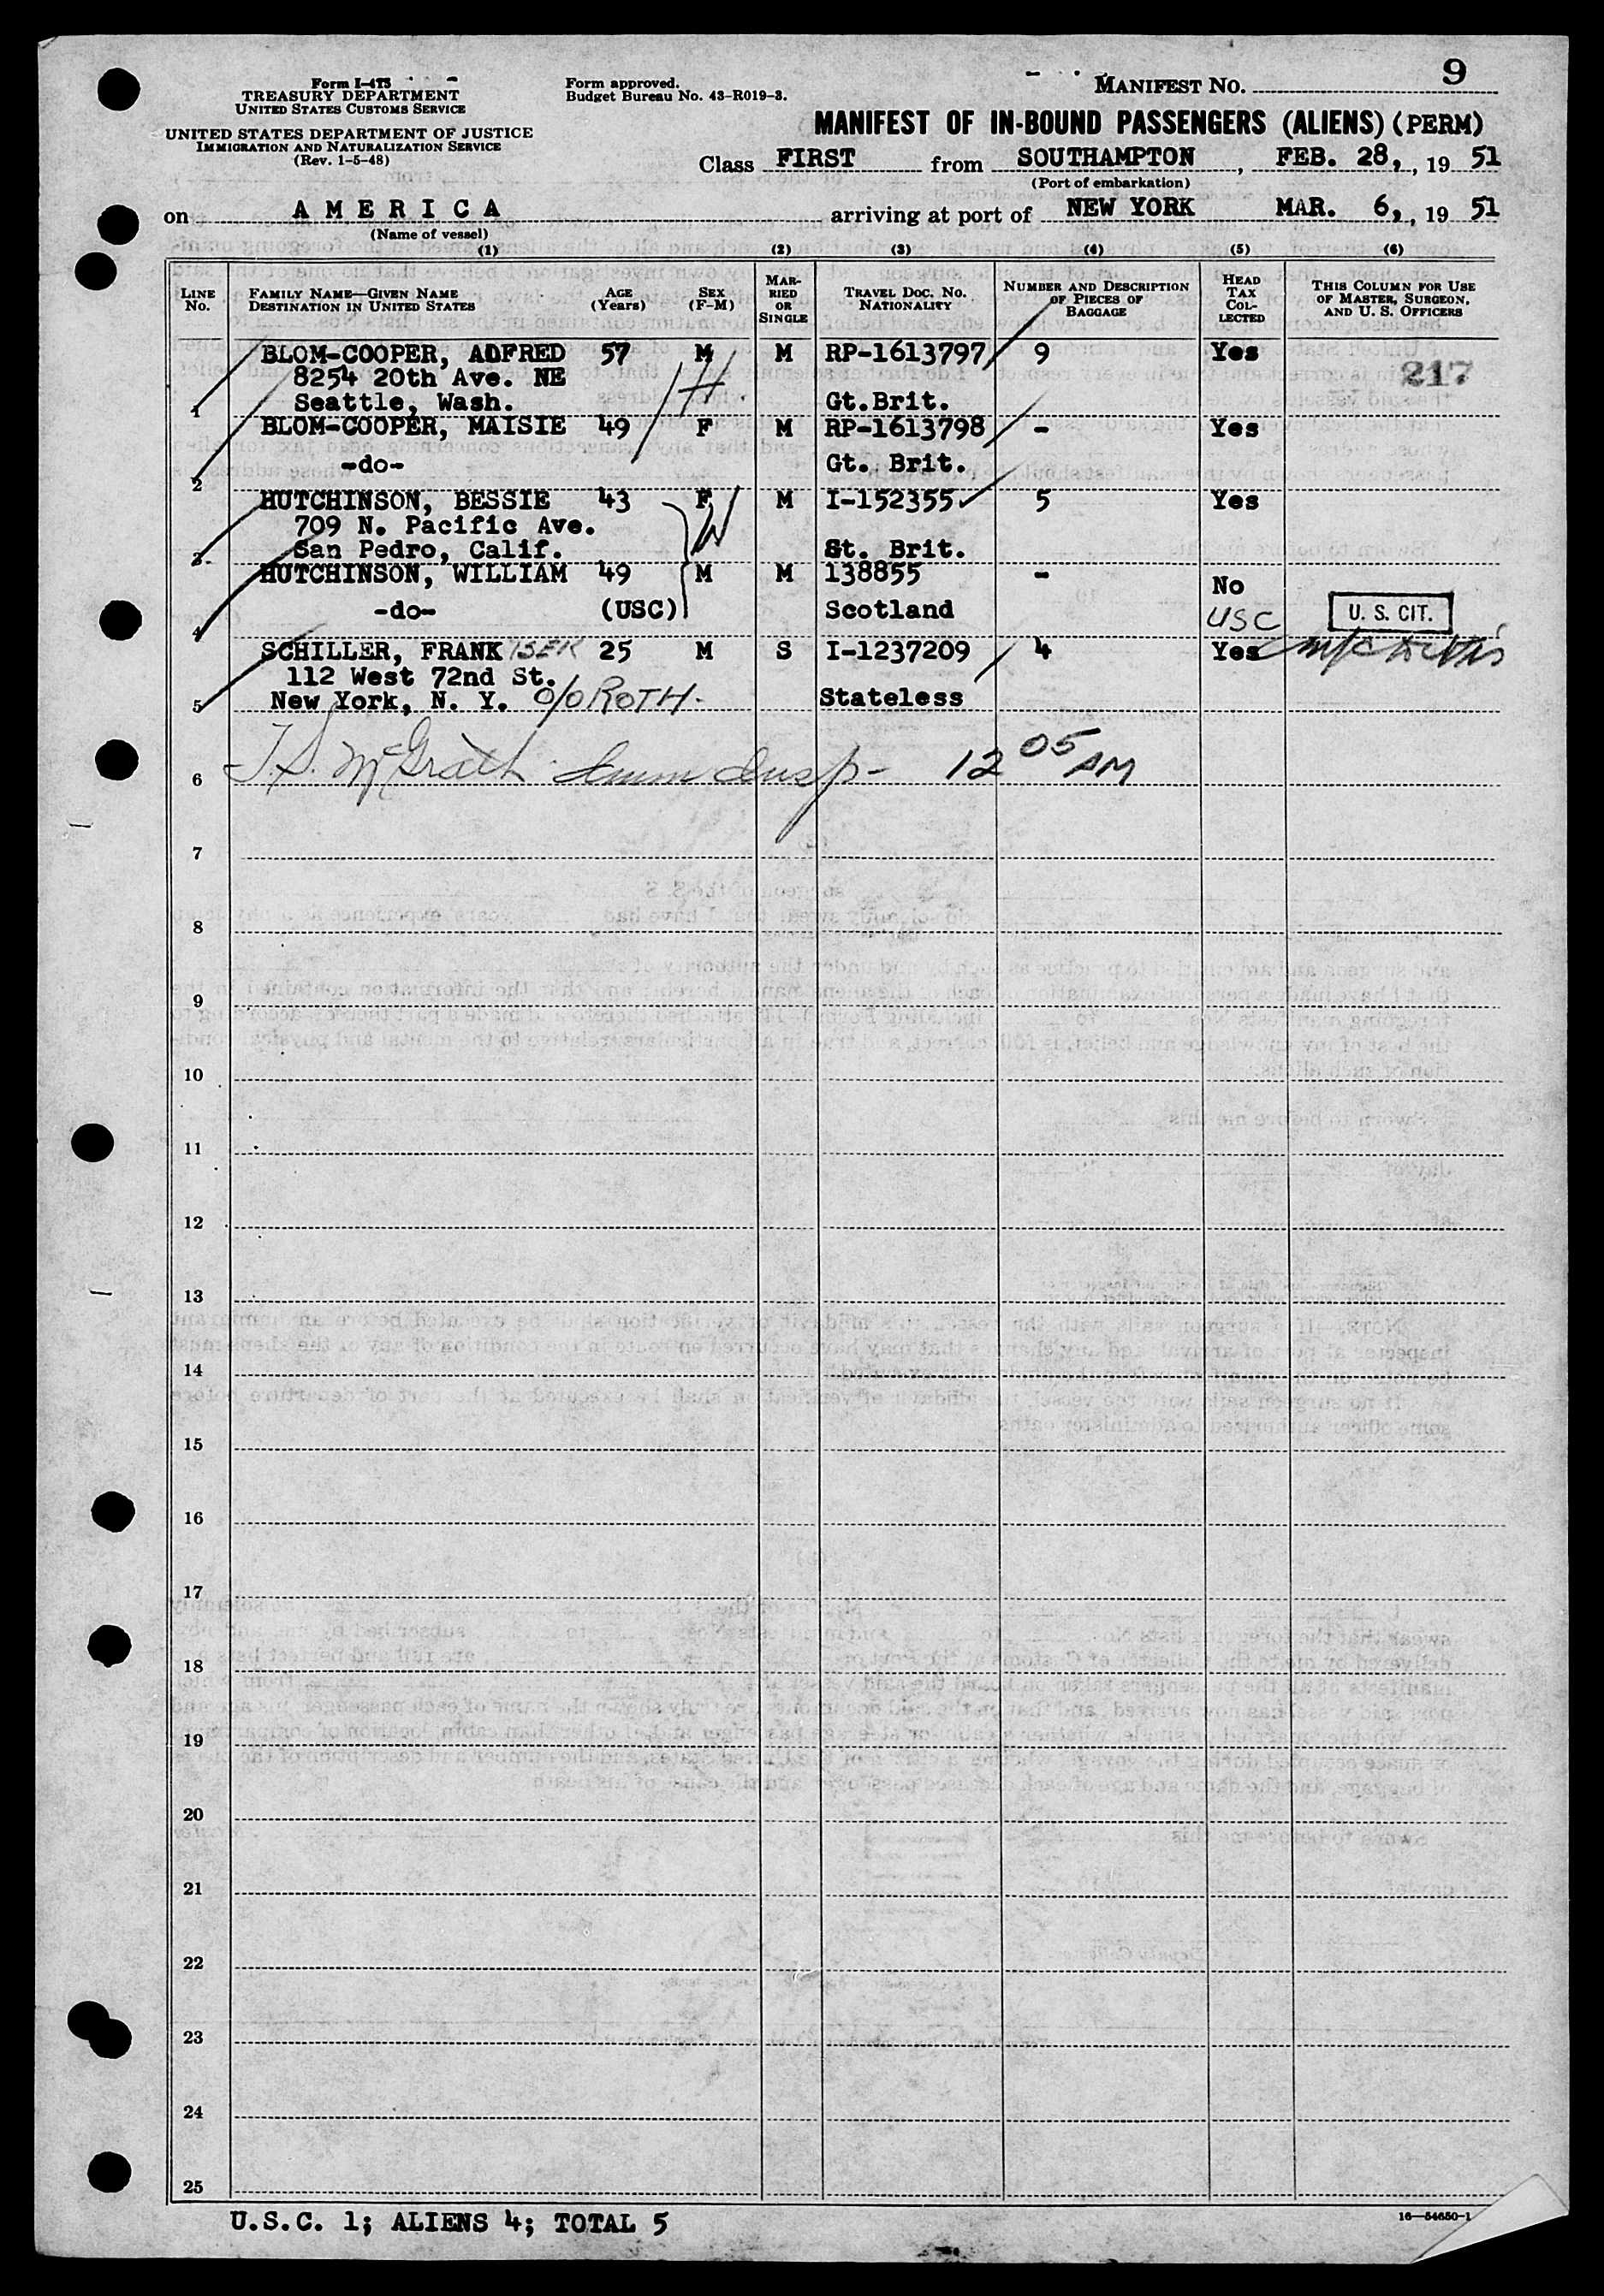 Form I-415
TREASURY DEPARTMENT
UNITED STATES CUSTOMS SERVICE
UNITED STATES DEPARTMENT OF JUSTICE
IMMIGRATION AND NATURALIZATION SERVICE
(Rev. 1-5-48)
Form approved.
Budget Bureau No. 43-R019-3.
MANIFEST NO. 9
MANIFEST OF IN-BOUND PASSENGERS (ALIENS) (PERM)
Class FIRST from SOUTHAMPTON, FEB. 28, , 19 51
(Port of embarkation)
on AMERICA arriving at port of NEW YORK MAR. 6, , 19 51
(Name of vessel)
(1) (2) (3) (4) (5) (6)
LINE No. FAMILY NAME—GIVEN NAME DESTINATION IN UNITED STATES AGE (Years) SEX (F-M) MARRIED OR SINGLE TRAVEL DOC. NO. NATIONALITY NUMBER AND DESCRIPTION OF PIECES OF BAGGAGE HEAD TAX COLLECTED THIS COLUMN FOR USE OF MASTER, SURGEON, AND U. S. OFFICERS
BLOM-COOPER, ADFRED 57 M M RP-1613797 9 Yes 217
8254 20th Ave. NE H
1 Seattle, Wash. Gt.Brit.
BLOM-COOPER, MAISIE 49 F M RP-1613798 - Yes
2 -do- Gt. Brit.
HUTCHINSON, BESSIE 43 F M I-152355 5 Yes
709 N. Pacific Ave. W
3 San Pedro, Calif. Gt. Brit.
HUTCHINSON, WILLIAM 49 M M 138855 - No
4 -do- (USC) Scotland USC U. S. CIT.
SCHILLER, FRANK ISEK 25 M S I-1237209 4 Yes
112 West 72nd St.
5 New York, N. Y. c/o ROTH- Stateless
6 T.S. McGrath Imm Insp- 12 05 AM
7
8
9
10
11
12
13
14
15
16
17
18
19
20
21
22
23
24
25
U.S.C. 1; ALIENS 4; TOTAL 5
16—54650-1